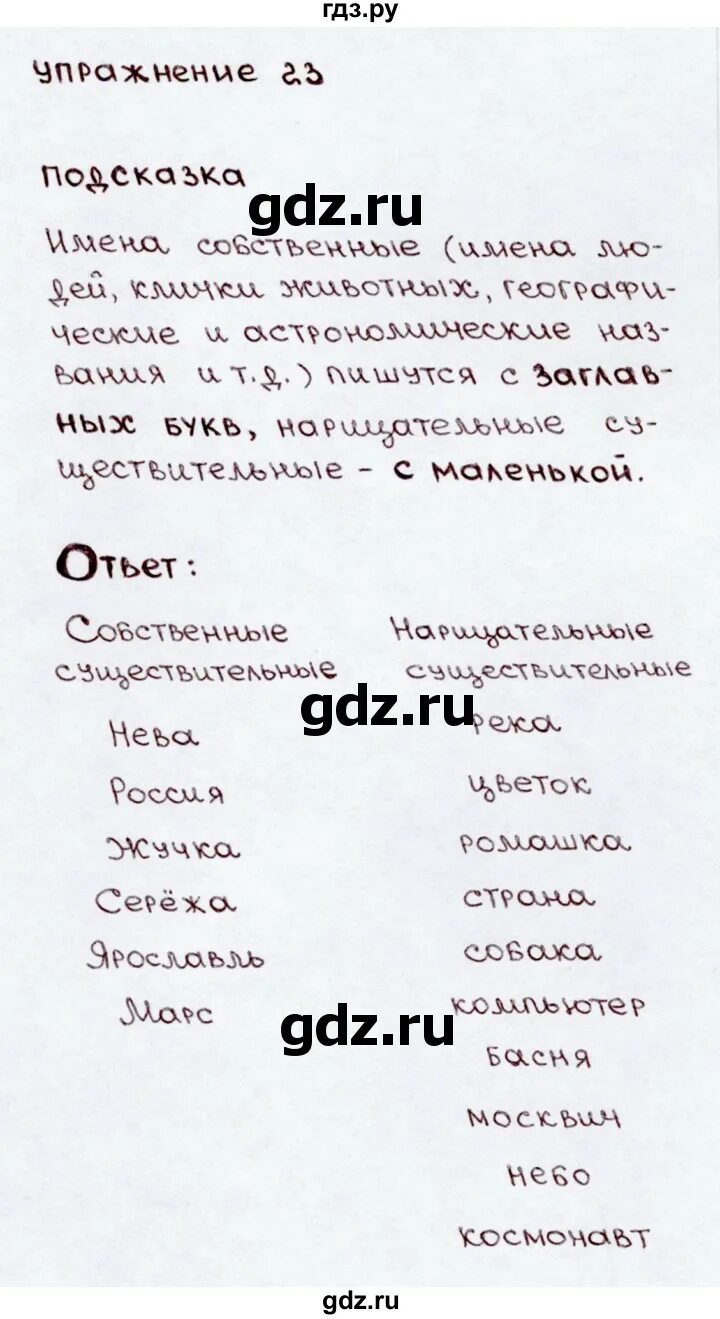 гдз.ру
упражнение 23
подсказка
gdz.ru
Имена собственные (имена лю-
дей, клички животных, географи-
ческие и астрономические наз-
вания и т.д.) пишутся с заглав-
ных букв, нарицательные су-
ществительные - с маленькой.
Ответ:
Собственные Нарицательные
существительные существительные
gdz.ru
Нева река
Россия цветок
Жучка ромашка
Серёжа страна
Ярославль собака
Марс компьютер
gdz.ru
басня
москвич
небо
космонавт
gdz.ru